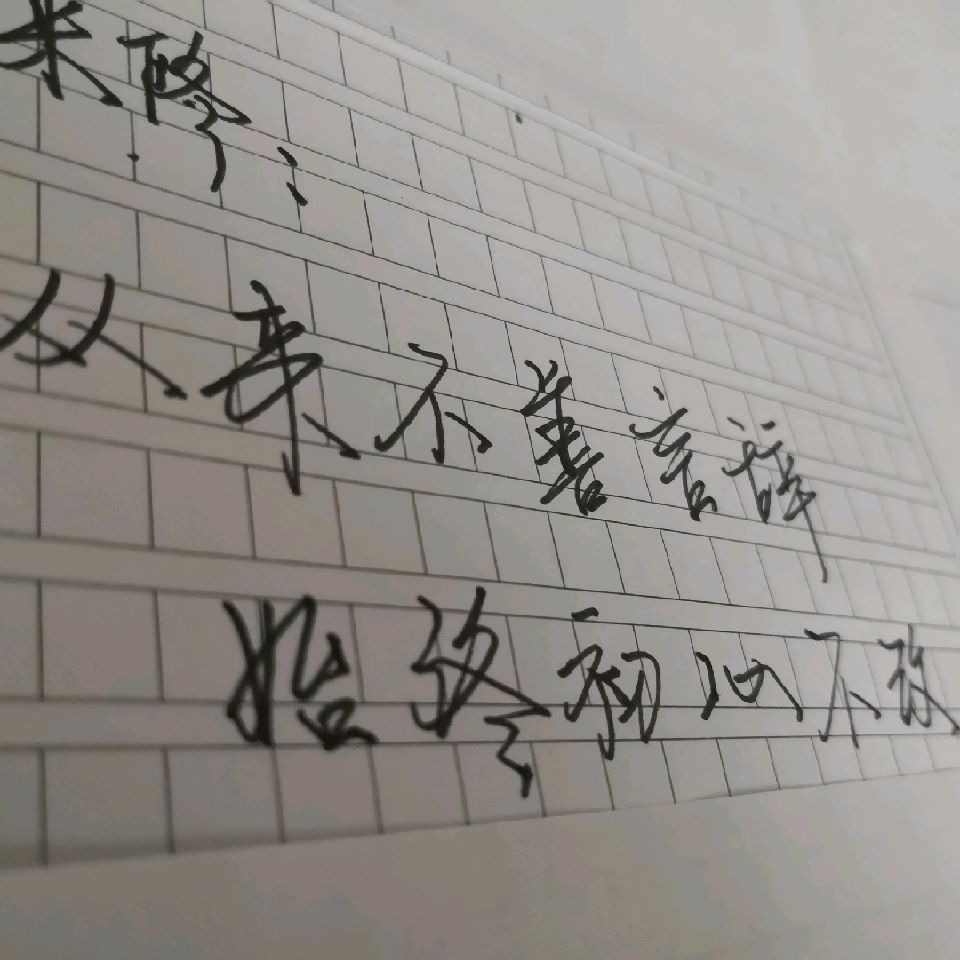 从来不善言辞
始终初心不改